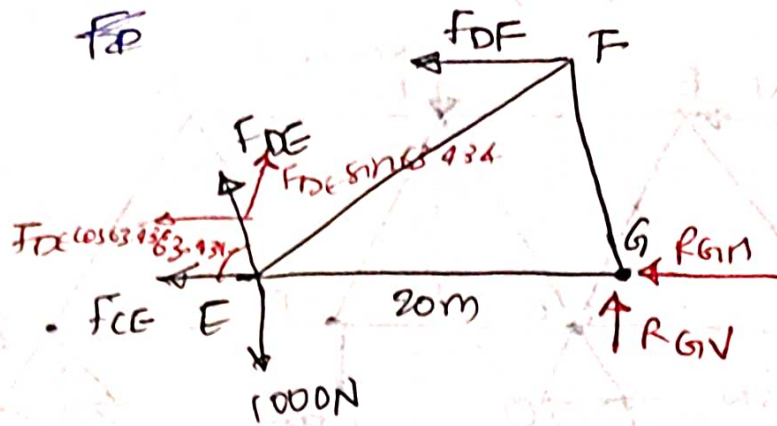 F_DF F
F_DE
F_DE sin 63.434
F_DE cos 63.434
63.434
G R_GH
F_CE E 20m
R_GV
1000N